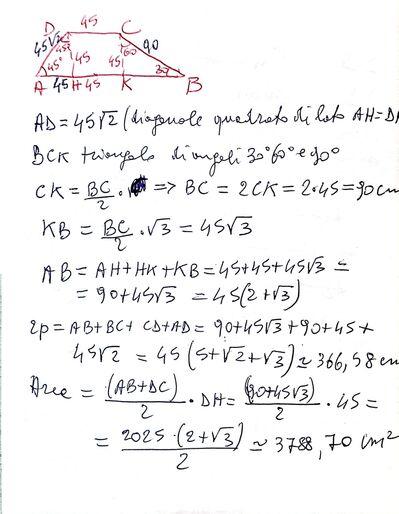 D 45 C
45√2 45° 45 45 60 90
45° 30
A 45 H 45 K B
AD = 45√2 (diagonale quadrato di lato AH=D
BCK triangolo di angoli 30° 60° e 90°
CK = BC/2 => BC = 2CK = 2·45 = 90 cm
KB = BC/2 · √3 = 45√3
AB = AH+HK+KB = 45+45+45√3 =
= 90+45√3 = 45(2+√3)
2p = AB+BC+CD+AD = 90+45√3+90+45+
45√2 = 45(5+√2+√3) ≃ 366,58 cm
Area = (AB+DC)/2 · DH = (90+45√3)/2 · 45 =
= 2025·(2+√3)/2 ≃ 3788,70 cm²